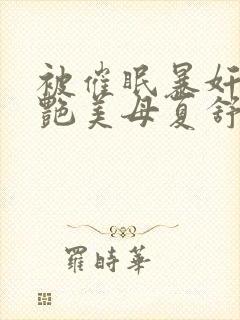 被催眠暴奸
艷美母夏舒
羅時華